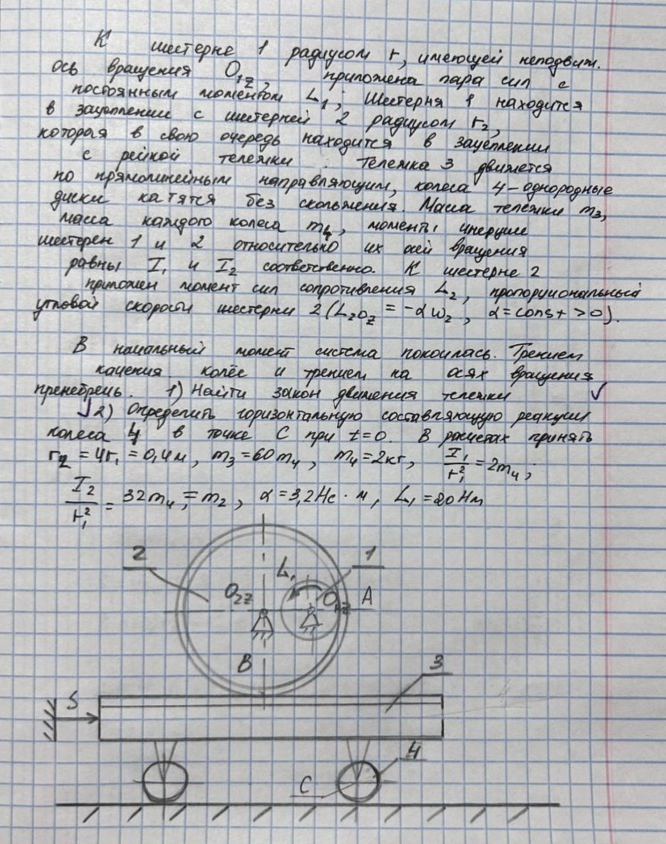 К шестерне 1 радиусом r, имеющей неподвиж.
ось вращения O₁z, приложена пара сил с
постоянным моментом L₁; Шестерня 1 находится
в зацеплении с шестерней 2 радиусом r₂,
которая в свою очередь находится в зацеплении
с рейкой тележки. Тележка 3 движется
по прямолинейным направляющим, колеса 4-однородные
диски катятся без скольжения. Масса тележки m₃,
масса каждого колеса m₄, моменты инерции
шестерен 1 и 2 относительно их осей вращения
равны I₁ и I₂ соответственно. К шестерне 2
приложен момент сил сопротивления L₂, пропорциональный
угловой скорости шестерни 2 (L₂₀z = -αω₂, α=const >0).
В начальный момент система покоилась. Трением
качения колёс и трением на осях вращения
пренебречь. 1) Найти закон движения тележки
2) Определить горизонтальную составляющую реакции
колеса 4 в точке С при t=0. В расчетах принять
r₂ = 4r₁ = 0,4м, m₃ = 60m₄, m₄ = 2кг, I₁/r₁² = 2m₄;
I₂/r₁² = 32m₄ = m₂, α = 3,2Нс·м, L₁ = 20Нм
2 L₁ 1
O₂z O₁z A
B
3
S
4
C